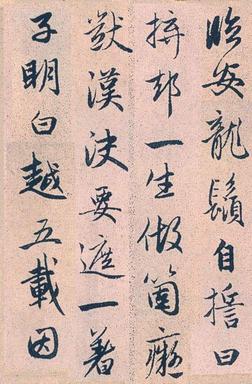 臨安龍鬚自誓曰
拚却一生做箇癡
獃漢決要遮一著
子明白越五載因